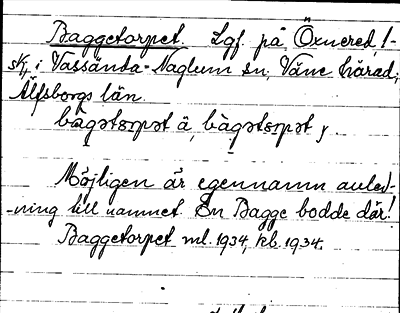 Baggetorpet. Lgf. på Öxnered, 1-
sk/1, i Vassända-Naglum sn, Väne härad,
Älfsborgs län.
bàgətɔrpət ä, bàgətɔrpət,
Möjligen är egennamn anled-
-ning till namnet. En Bagge bodde där!
Baggetorpet ml. 1934, kb. 1934.